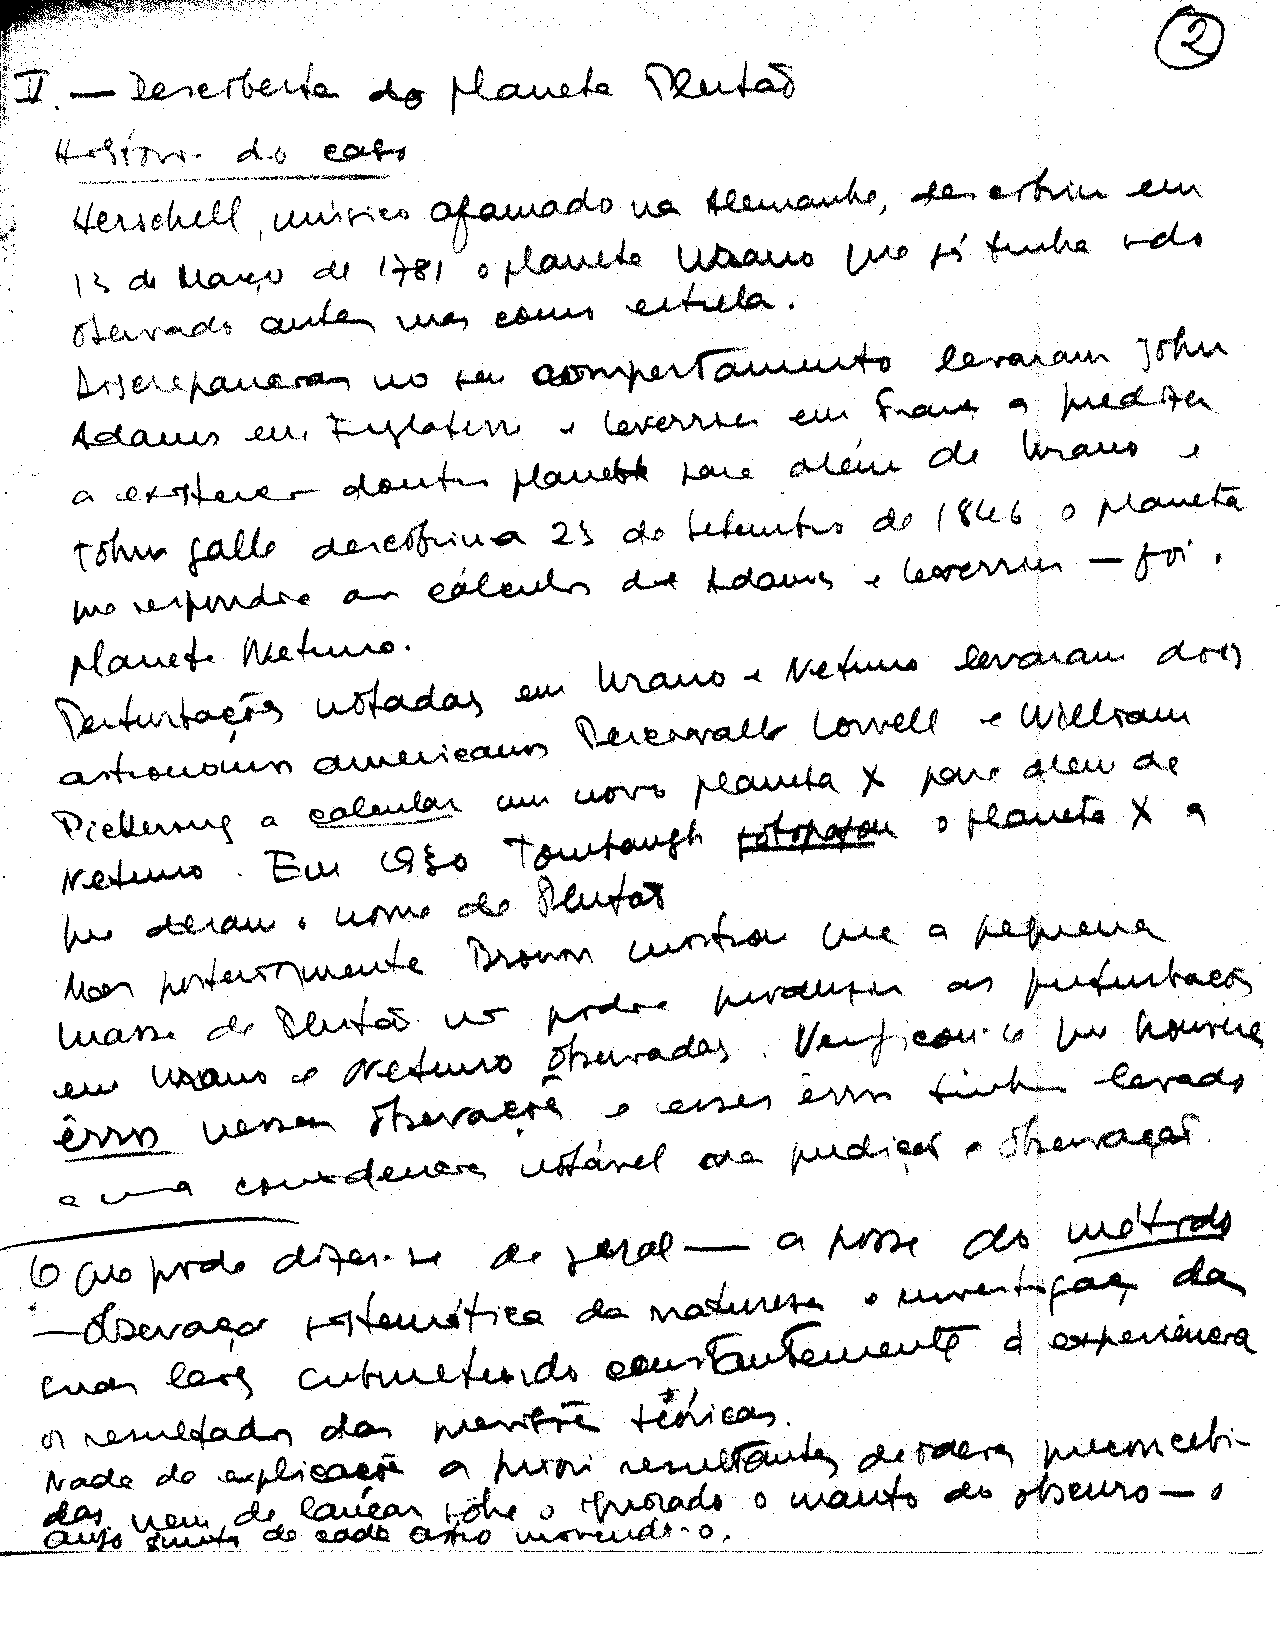 2
V. — Descoberta do planeta Plutão
História do caso
Herschell, músico afamado na Alemanha, descobriu em
13 de Março de 1781 o planeta Urano que já tinha sido
observado antes mas como estrela.
Discrepancias no seu comportamento levaram John
Adams em Inglaterra e Leverrier em França a predizer
a existencia doutro planeta para além de Urano e
John Galle descobriu a 23 de Setembro de 1846 o planeta
que respondia aos cálculos de Adams e Leverrier — foi o
planeta Netuno.
Perturbações notadas em Urano e Netuno levaram dois
astronomos americanos Percervall Lowell e William
Pickering a calcular um novo planeta X para alem de
Netuno. Em 1930 Tombaugh fotografou o planeta X a
que deram o nome de Plutão
Mas posteriormente Brown mostrou que a pequena
massa de Plutão não podia produzir as perturbações
em Urano e Netuno observadas. Verificou-se que houvera
êrros nessas observações e esses êrros tinham levado
a uma coincidencia notável da predição e observação.
6 Que pode dizer-se de geral — a posse do método
— observação sistemática da natureza e investigação das
suas leis submetendo constantemente à experiência
os resultados das previsões teóricas.
Nada de explicações a priori resultantes de ideias preconcebi-
das, nem de lançar sôbre o ignorado o manto do obscuro — o
anjo de cada astro movendo-o.